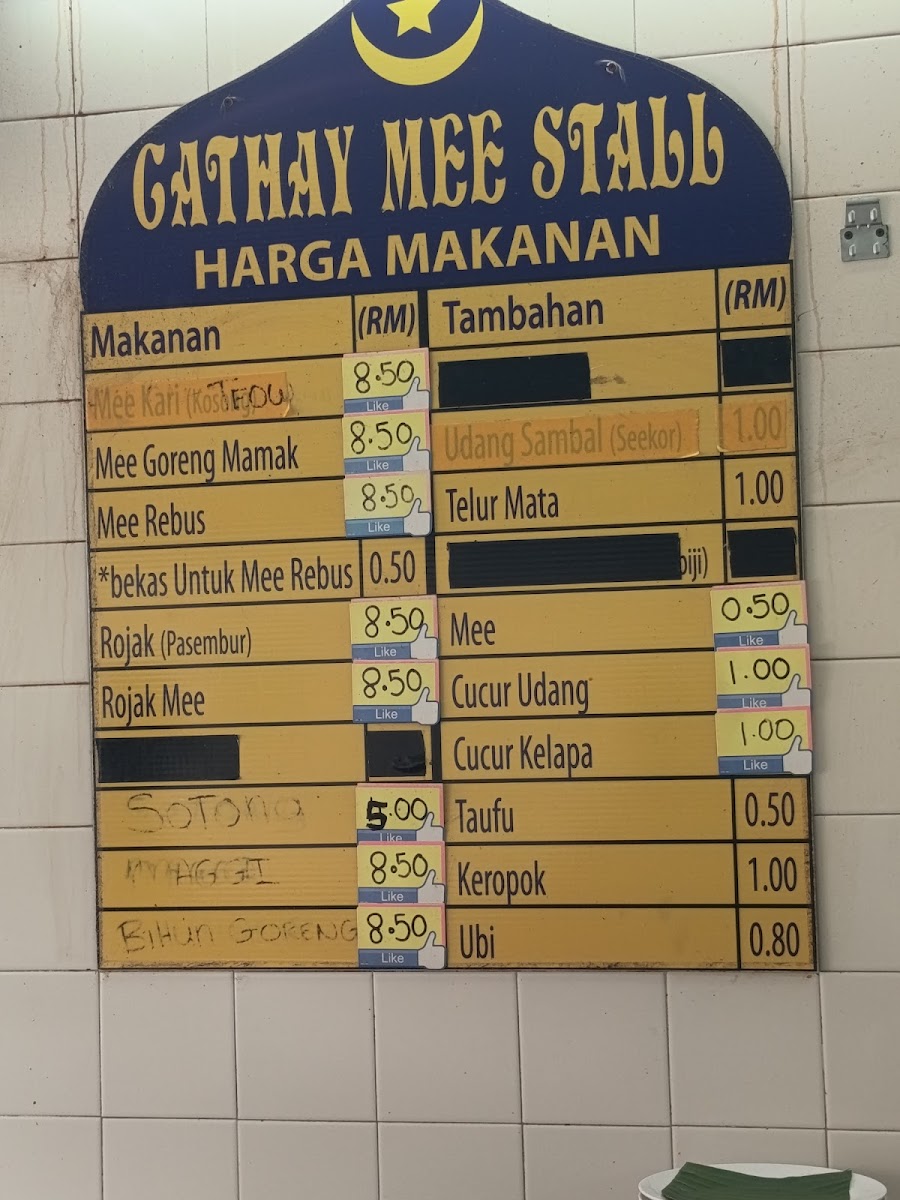 CATHAY MEE STALL
HARGA MAKANAN
Makanan (RM)
Mee Kari TEOW 8.50
Like
Mee Goreng Mamak 8.50
Like
Mee Rebus 8.50
Like
*bekas Untuk Mee Rebus 0.50
Rojak (Pasembur) 8.50
Like
Rojak Mee 8.50
Like
SOTONG 5.00
Like
MAGGI 8.50
Like
BIHUN GORENG 8.50
Like
Tambahan (RM)
Udang Sambal (Seekor) 1.00
Telur Mata 1.00
biji)
Mee 0.50
Like
Cucur Udang 1.00
Like
Cucur Kelapa 1.00
Like
Taufu 0.50
Keropok 1.00
Ubi 0.80